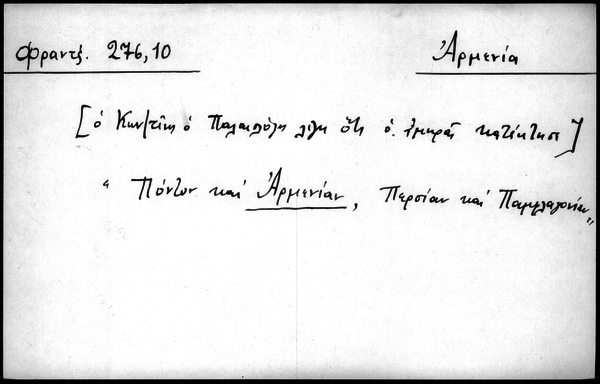 Φραντζ. 276,10 Ἀρμενία
[ὁ Κων/τῖνος ὁ Παλαιολόγος λέγει ὅτι ὁ ἐμηρᾶς κατέκτησε]
“ Πόντον καὶ Ἀρμενίαν, Περσίαν καὶ Παμφλαγονίαν„